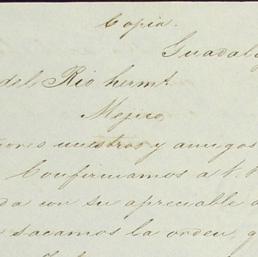 Copia.
Guadala
del Rio hermº
Mejico,
ores nuestros y amigos
Confirmamos a V.
da con su apreciable d
sacamos la orden, q